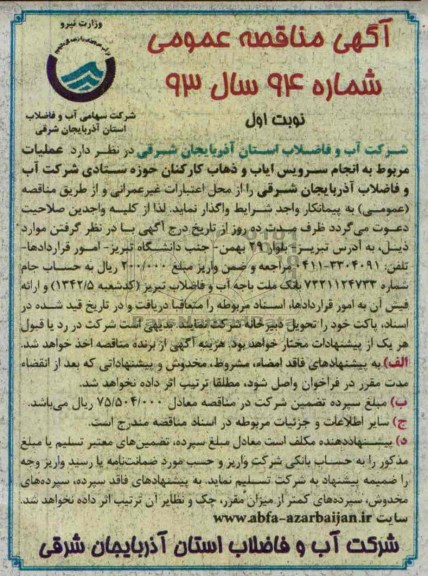 وزارت نیرو
شرکت سهامی آب و فاضلاب
استان آذربایجان شرقی
آگهی مناقصه عمومی
شماره ۹۴ سال ۹۳
نوبت اول
شرکت آب و فاضلاب استان آذربایجان شرقی در نظر دارد عملیات
مربوط به انجام سرویس ایاب و ذهاب کارکنان حوزه ستادی شرکت آب
و فاضلاب آذربایجان شرقی را از محل اعتبارات غیرعمرانی و از طریق مناقصه
(عمومی) به پیمانکار واجد شرایط واگذار نماید. لذا از کلیه واجدین صلاحیت
دعوت می‌گردد ظرف مدت ده روز از تاریخ درج آگهی با در نظر گرفتن موارد
ذیل، به آدرس تبریز- بلوار ۲۹ بهمن- جنب دانشگاه تبریز- امور قراردادها-
تلفن: ۳۳۰۴۰۹۱-۰۴۱۱ مراجعه و ضمن واریز مبلغ ۲۰۰/۰۰۰ ریال به حساب جام
شماره ۷۲۳۱۱۲۴۷۳۳ بانک ملت باجه آب و فاضلاب تبریز (کدشعبه ۱۳۴۲/۵) و ارائه
فیش آن به امور قراردادها، اسناد مربوطه را متعاقبا دریافت و در تاریخ قید شده در
اسناد، پاکت خود را تحویل دبیرخانه شرکت نمایند. بدیهی است شرکت در رد یا قبول
هر یک از پیشنهادات مختار خواهد بود. هزینه آگهی از برنده مناقصه اخذ خواهد شد.
الف) به پیشنهادهای فاقد امضاء، مشروط، مخدوش و پیشنهاداتی که بعد از انقضاء
مدت مقرر در فراخوان واصل شود، مطلقا ترتیب اثر داده نخواهد شد.
ب) مبلغ سپرده تضمین شرکت در مناقصه معادل ۷۵/۵۰۴/۰۰۰ ریال می‌باشد.
ج) سایر اطلاعات و جزئیات مربوطه در اسناد مناقصه مندرج است.
د) پیشنهاددهنده مکلف است معادل مبلغ سپرده، تضمین‌های معتبر تسلیم یا مبلغ
مذکور را به حساب بانکی شرکت واریز و حسب مورد ضمانت‌نامه یا رسید واریز وجه
را ضمیمه پیشنهاد به شرکت تسلیم نماید. به پیشنهادهای فاقد سپرده، سپرده‌های
مخدوش، سپرده‌های کمتر از میزان مقرر، چک و نظایر آن ترتیب اثر داده نخواهد شد.
سایت www.abfa-azarbaijan.ir
شرکت آب و فاضلاب استان آذربایجان شرقی